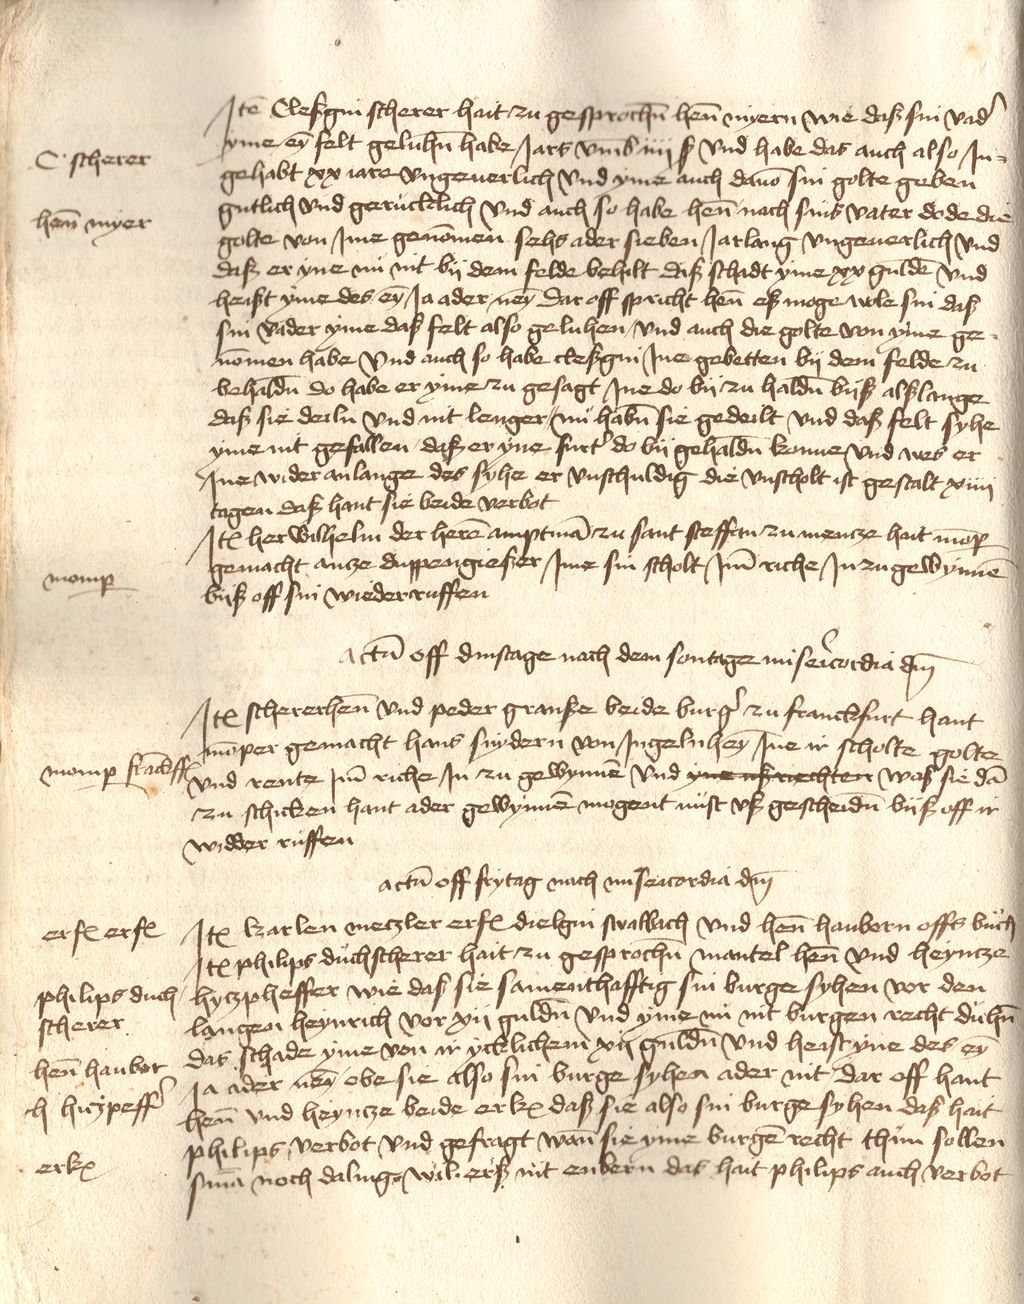 Itē Cleßgin scherer hait zu gesprochē henē myern wie daß sin vad'
C scherer
yme eȳ felt geluhē habe Jars vmb iiii ß vnd habe das auch also Jn=
gehabt xx iare vngeuerlich vnd yme auch dauō sin golte geben
henē myer
gutlich vnd gerucklich vnd auch so habe henē nach sins vater dode die
golte von Jme genōmen sehs ader sieben Jarlang vngeuerlich vnd
daß er yne nū nit bij dem felde behilt daß schadt yme xx guldē vnd
heisßt yme des eȳ Ja ader neȳ dar off spricht henē eß moge wole sin daß
sin vader yme daß felt also geluhen vnd auch die golte von yme ge=
nōmen habe vnd auch so habe cleßgin Jne gebetten bij dem felde zu
behaldē do habe er yme zu gesagt Jne do bij zu haldē bijß alßlange
daß sie deiln vnd nit lenger nū habē sie gedeilt vnd daß felt syhe
yme nit gefallen daß er yne furt' do bij gehaldē konne vnd wes er
Jne wider anlange des syhe er vnschuldig die vnscholt ist gestalt xiiii
tagen daß hant sie beide verbot
Itē her Wilhelm der herē amptmā zu sant steffan zu mencze hait mōp
momp
gemacht ancze duppengießer Jme sin scholt Jm riche Jn zu gewynnē
bijß off sin wiederruffen
actū off dinstage nach dem sontage misericordia dn̄i
Itē schererhenē vnd peder granße beide burg' zu franckfurt hant
mōper gemacht hans snydern von Jngelnheȳ Jne ir scholte golte
momp
vnd rente Jm riche Jn zu gewynnē vnd waß sie dā
zu schicken hant ader gewynnē mogent nust vß gescheidē bijß off ir
widder ruffen
actū off frytag nach misericordia dn̄i
erfx erfx
Itē karlen meczler erfx dielgin swalbach vnd henē haubern offs buch
Itē philips duchscherer hait zu gesprochē mantel henē vnd heyncze
philips duch
hyczpheffer wie daß sie samenthafftig sin burge syhen vor den
scherer
langen heynrich vor xij guldē vnd yme nū nit burgen recht duhē
das schade yme von ir ycklichem xij guldē vnd heist yne des eȳ
henē hanbor
Ja ader neȳ obe sie also sin burge syhen ader nit dar off hant
h hiczpeff'
henē vnd heyncze beide erkx daß sie also sin burge syhen daß hait
philips verbot vnd gefragt wan sie yme burgē recht thun sollen
erkx
sinā noch daling wil erß nit enbern das hait philips auch verbot